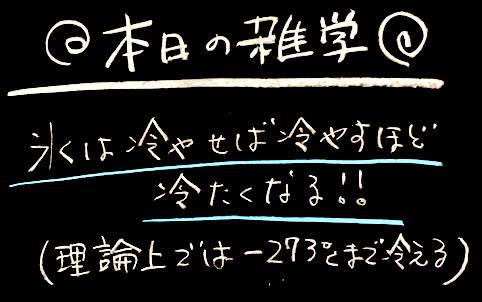 本日の雑学
氷は冷やせば冷やすほど
冷たくなる!!
(理論上では-273℃まで冷える)